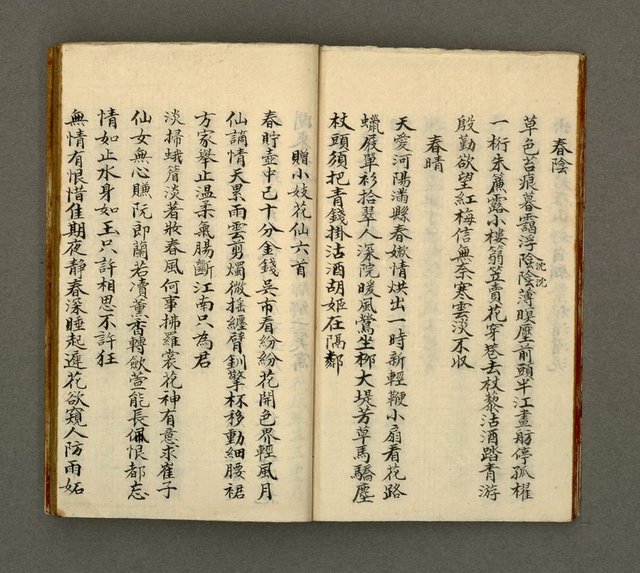 春陰
草色苔痕暮靄浮陰陰薄暝壓前頭半江畫舫停孤櫂
沈沈
一桁朱簾露小樓蒻笠賣花穿巷去杖藜沽酒踏青游
殷勤欲望紅梅信無奈寒雲淡不収
春晴
天愛河陽滿縣春嫩情烘出一時新輕鞭小扇看花路
蠟屐單衫拾翠人深院暖風鶯坐栁大堤芳草馬驕塵
杖頭須把青錢掛沽酒胡姬在隔鄰
贈小妓花仙六首
春貯壺中已十分金錢吳市看紛紛花開色界輕風月
仙謫情天累雨雲剪燭微搖纏臂釧擎杯移動細腰裙
方家舉止温柔氣腸斷江南只為君
淡掃蛾眉淡着妝春風何事拂羅裳花神有意求崔子
仙女無心賺阮郎蘭若凟薰香轉歛萱能長佩恨都忘
情如止水身如玉只許相思不許狂
無情有恨惜佳期夜静春深睡起遲花欲窺人防雨妬